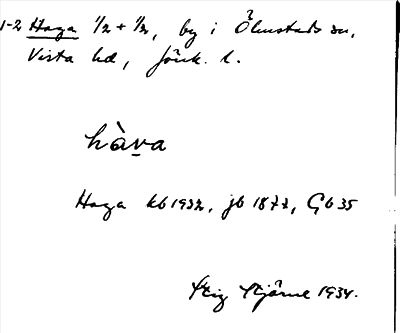 1-2 Haga 1/2 + 1/2, by i Ölmstads sn,
Vista hd, Jönk. l.
hàva
Haga kb 1932, jb 1877, Gb 35
Stig Stjärne 1934.